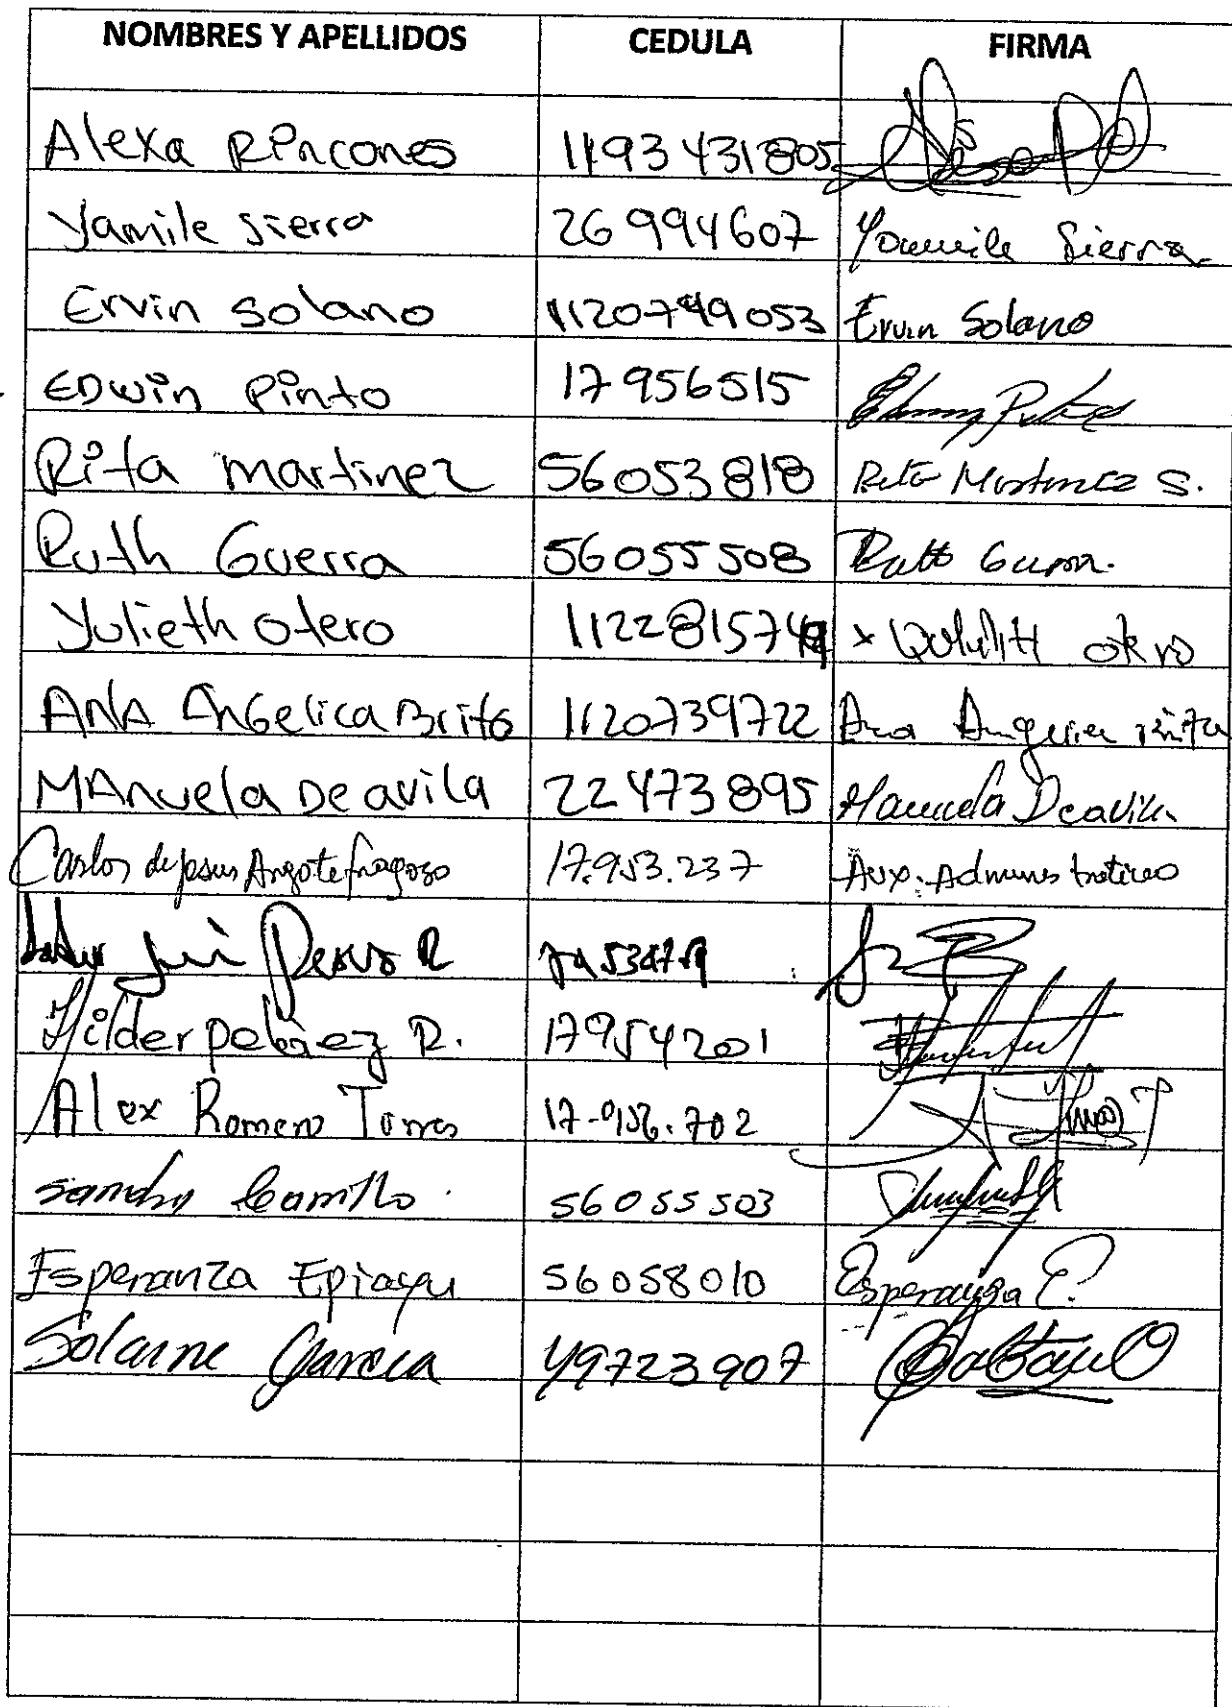 NOMBRES Y APELLIDOS CEDULA FIRMA
Alexa Rincones 1193431805
Yamile Sierra 26994607 Yamile Sierra
Ervin Solano 1120749053 Ervin Solano
EDwin Pinto 17956515
Rita martinez 56053818 Rita Martinez S.
Ruth Guerra 56055508 Ruth Guerra.
Yulieth otero 112281574 x otero
ANA Angelica Brito 1120739722 Ana Angelica Brito
MAnuela De avila 22473895 Manuela Deavila
Carlos de jesus Argote fragozo 17.953.237 Aux. Administrativo
Hilder pelaez R. 17954201
Alex Romero Torres 17.956.702
Carrillo 56055503
Esperanza Epiayu 56058010 Esperanza E.
Solaine Garcia 49723907